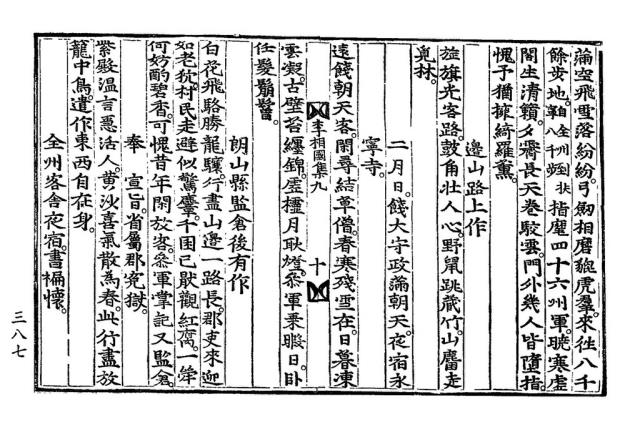 滿空飛雪落紛紛。弓釰相磨貔虎羣。來往八千
餘步地。指麾四十六州軍。曉寒虛
閣生清籟。夕霽長天卷駁雲。門外幾人皆墮指。
愧予猶擁綺羅薰。
邊山路上作
旌旗光客路。鼓角壯人心。野鼠跳藏竹。山麕走
林。
二月日。餞大守政滿朝天。夜宿永
寧寺。
遠餞朝天客。閑尋結草僧。春寒殘雪在。日暮凍
李相國集九 十
雲凝。古壁苔纏錦。虛欞月映燈。叅軍乘暇日。卧
任髮鬅鬙。
朗山縣監倉後有作
白花飛駱勝龍驤。行盡山邊一路長。郡吏來迎
如老狖。村民走避似驚麞。千囷已猒觀紅腐。一斝
何妨酌碧香。可愧昔年閑放客。叅軍掌記又監倉。
奉 宣旨。省屬郡寃獄。
紫殿溫言悉活人。黃沙喜氣散爲春。此行盡放
籠中鳥。遣作東西自在身。
全州客舍夜宿。書褊懷。
三八七